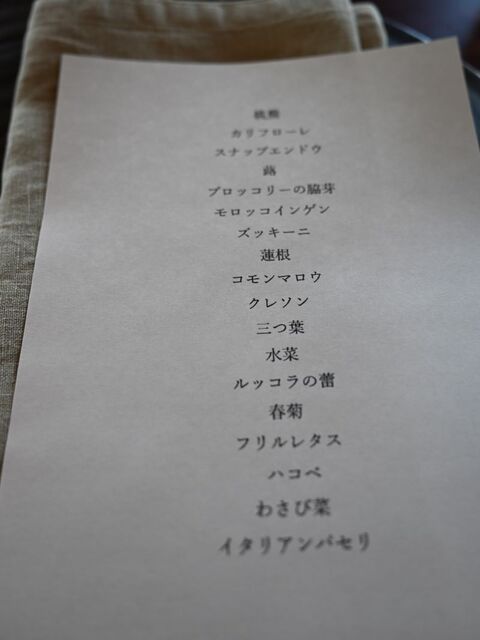 カリフローレ
スナップエンドウ
蕗
ブロッコリーの脇芽
モロッコインゲン
ズッキーニ
蓮根
コモンマロウ
クレソン
三つ葉
水菜
ルッコラの蕾
春菊
フリルレタス
ハコベ
わさび菜
イタリアンパセリ